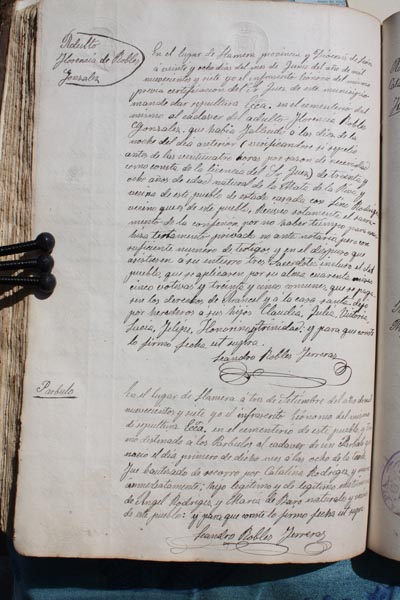 Adulto
Florencia de Robles
Gonzalez
En el lugar de Llamera provincia y Diócesis de León
á veinte y ocho dias del mes de Junio del año de mil
novecientos y siete yo el infrascrito Ecónomo del mismo
previa certificación del Sr. Juez de este municipio
mandé dar sepultura Ecca. en el cementerio del
mismo al cadáver del adulto Florencia Robles
Gonzalez, que habia fallecido a las diez de la
noche del dia anterior (verificandose el sepelio
antes de las venticuatro horas por razon de necesidad
como consta de la licencia del Sr. Juez) de treinta y
ocho años de edad natural de la Mata de la Riva y
vecina de este pueblo de estado casada con Lino Rodriguez
vecino que es de este pueblo, Recibió solamente el sacra-
mento de la confesion por no haber tiempo para mas
hizo testamento privado no ante notario, pero con
suficiente numero de testigos y en el dispuso que
asistiesen á su entierro tres Sacerdotes incluso el del
pueblo, que se aplicaren por su alma cuarenta misas
cinco votivas y treinta y cinco comunes, que se paga-
sen los derechos de Arancel y a la casa santa dejó
por herederos a sus hijos Claudia, Julia, Victoria,
Lucia, Felipe, Honorino y trinidad: y para que conste
lo firmo fecha ut supra.
Leandro Robles Ferreras
Parbulo
En el lugar de Llamera á dos de Setiembre del año de mil
novecientos y siete yo el infrascrito Ecónomo del mismo
dí sepultura Ecca. en el cementerio de este pueblo, y
destinado a los Parbulos al cadaver de un Parbulo que
nació el dia primero de dicho mes a las ocho de la
Fue bautizado de socorro por Catalina Rodriguez y murió
inmediatamente; hijo legitimo y de legitimo matrimonio
de Angel Rodriguez y Maria de Haro naturales y vecinos
de este pueblo: y para que conste lo firmo fecha ut supra.
Leandro Robles Ferreras